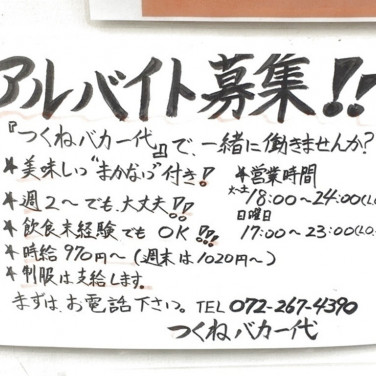 アルバイト募集!!
『つくねバカ一代』で、一緒に働きませんか?
★美味しい"まかない"付き!
★営業時間
★週2〜でも、大丈夫!!
火〜土 18:00〜24:00(L.O.
日曜日
★飲食未経験でもOK!!!
17:00〜23:00(L.O.
★時給970円〜(週末は1020円〜)
★制服は支給します。
まずは、お電話下さい。TEL 072-267-4390
つくねバカ一代